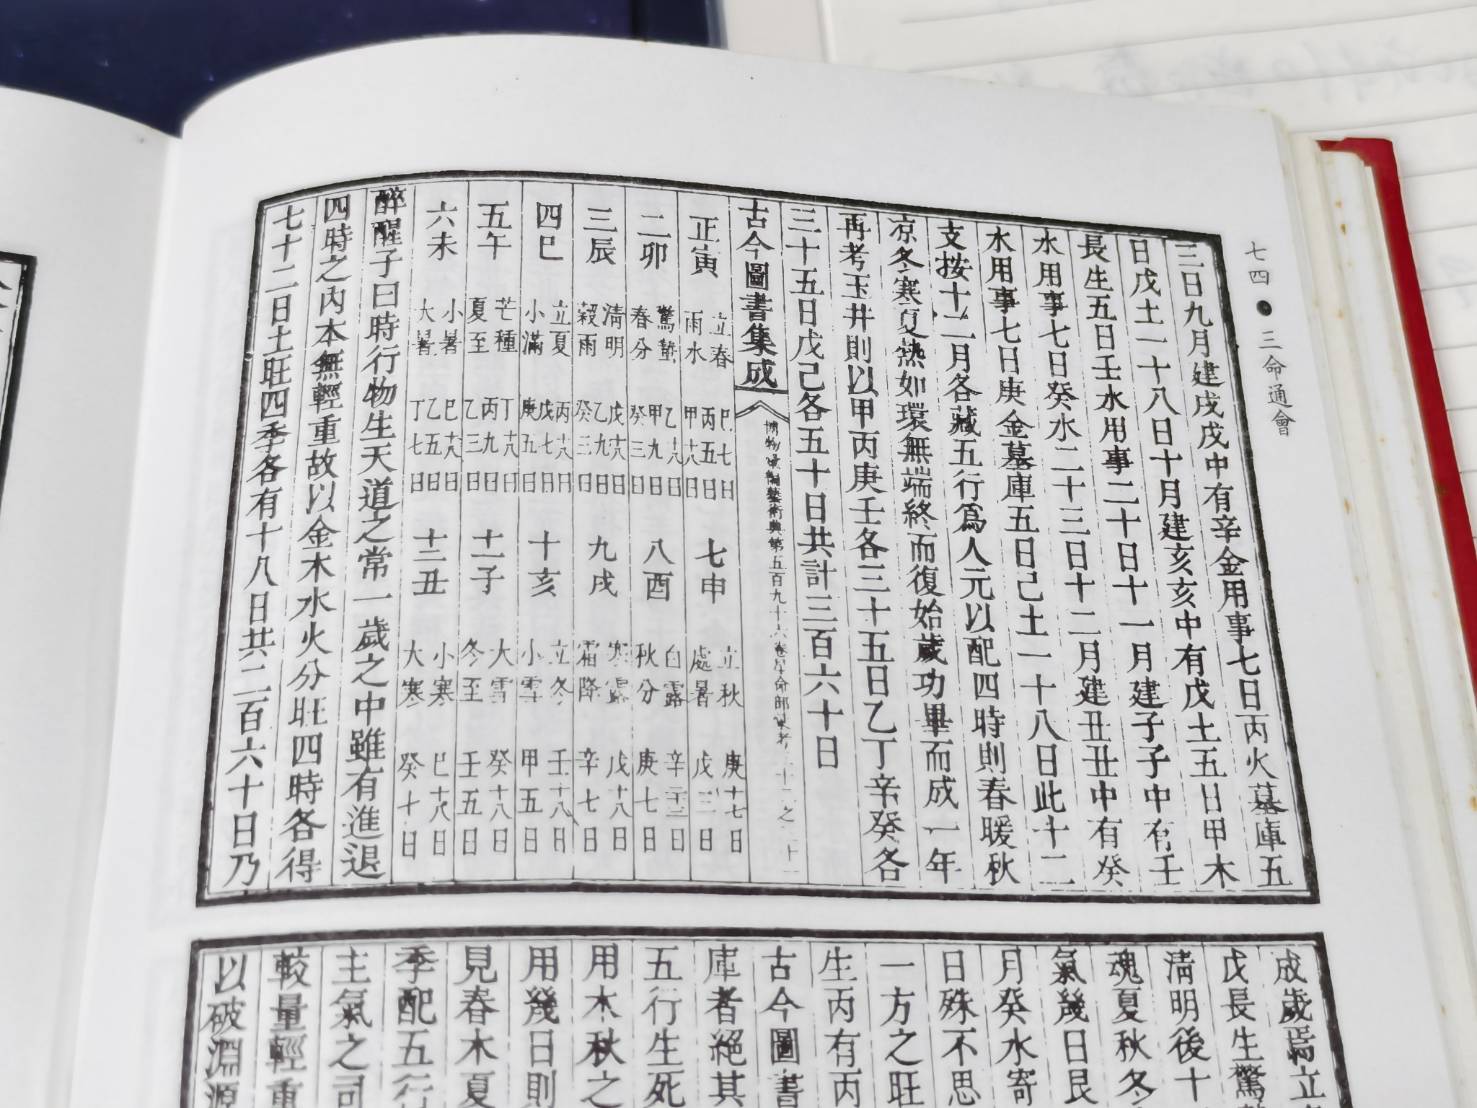 七四•三命通會
三日九月建戌戌中有辛金用事七日丙火墓庫五
日戊土一十八日十月建亥亥中有戊土五日甲木
長生五日壬水用事二十日十一月建子子中有壬
水用事七日癸水二十三日十二月建丑丑中有癸
水用事七日庚金墓庫五日己土一十八日此十二
支按十二月各藏五行爲人元以配四時則春暖秋
凉冬寒夏熱如環無端終而復始歲功畢而成一年
再考玉井則以甲丙庚壬各三十五日乙丁辛癸各
三十五日戊己各五十日共計三百六十日
古今圖書集成
正寅 立春 雨水 巳七日 丙五日 甲十八日 七申 立秋 處暑 庚十七日 戊三日
二卯 驚蟄 春分 乙十八日 甲九日 癸三日 八酉 白露 秋分 辛二十三日 庚七日
三辰 清明 穀雨 戊十八日 乙九日 癸三日 九戌 寒露 霜降 戊十八日 辛七日
四巳 立夏 小滿 丙十八日 戊七日 庚五日 十亥 立冬 小雪 壬十八日 甲五日
五午 芒種 夏至 丁十八日 丙九日 乙三日 十一子 大雪 冬至 癸十八日 壬五日
六未 小暑 大暑 巳十八日 乙五日 丁七日 十二丑 小寒 大寒 巳十八日 癸十日
醉醒子曰時行物生天道之常一歲之中雖有進退
四時之內本無輕重故以金木水火分旺四時各得
七十二日土旺四季各有十八日共三百六十日乃
成歲焉立
戊長生驚
清明後十
魂夏秋冬
氣幾日艮
月癸水寄
日殊不思
一方之旺
生丙有丙
古今圖書
庫者絕其
五行生死
用木秋之
用幾日則
見春木夏
季配五行
主氣之司
較量輕重
以破淵源